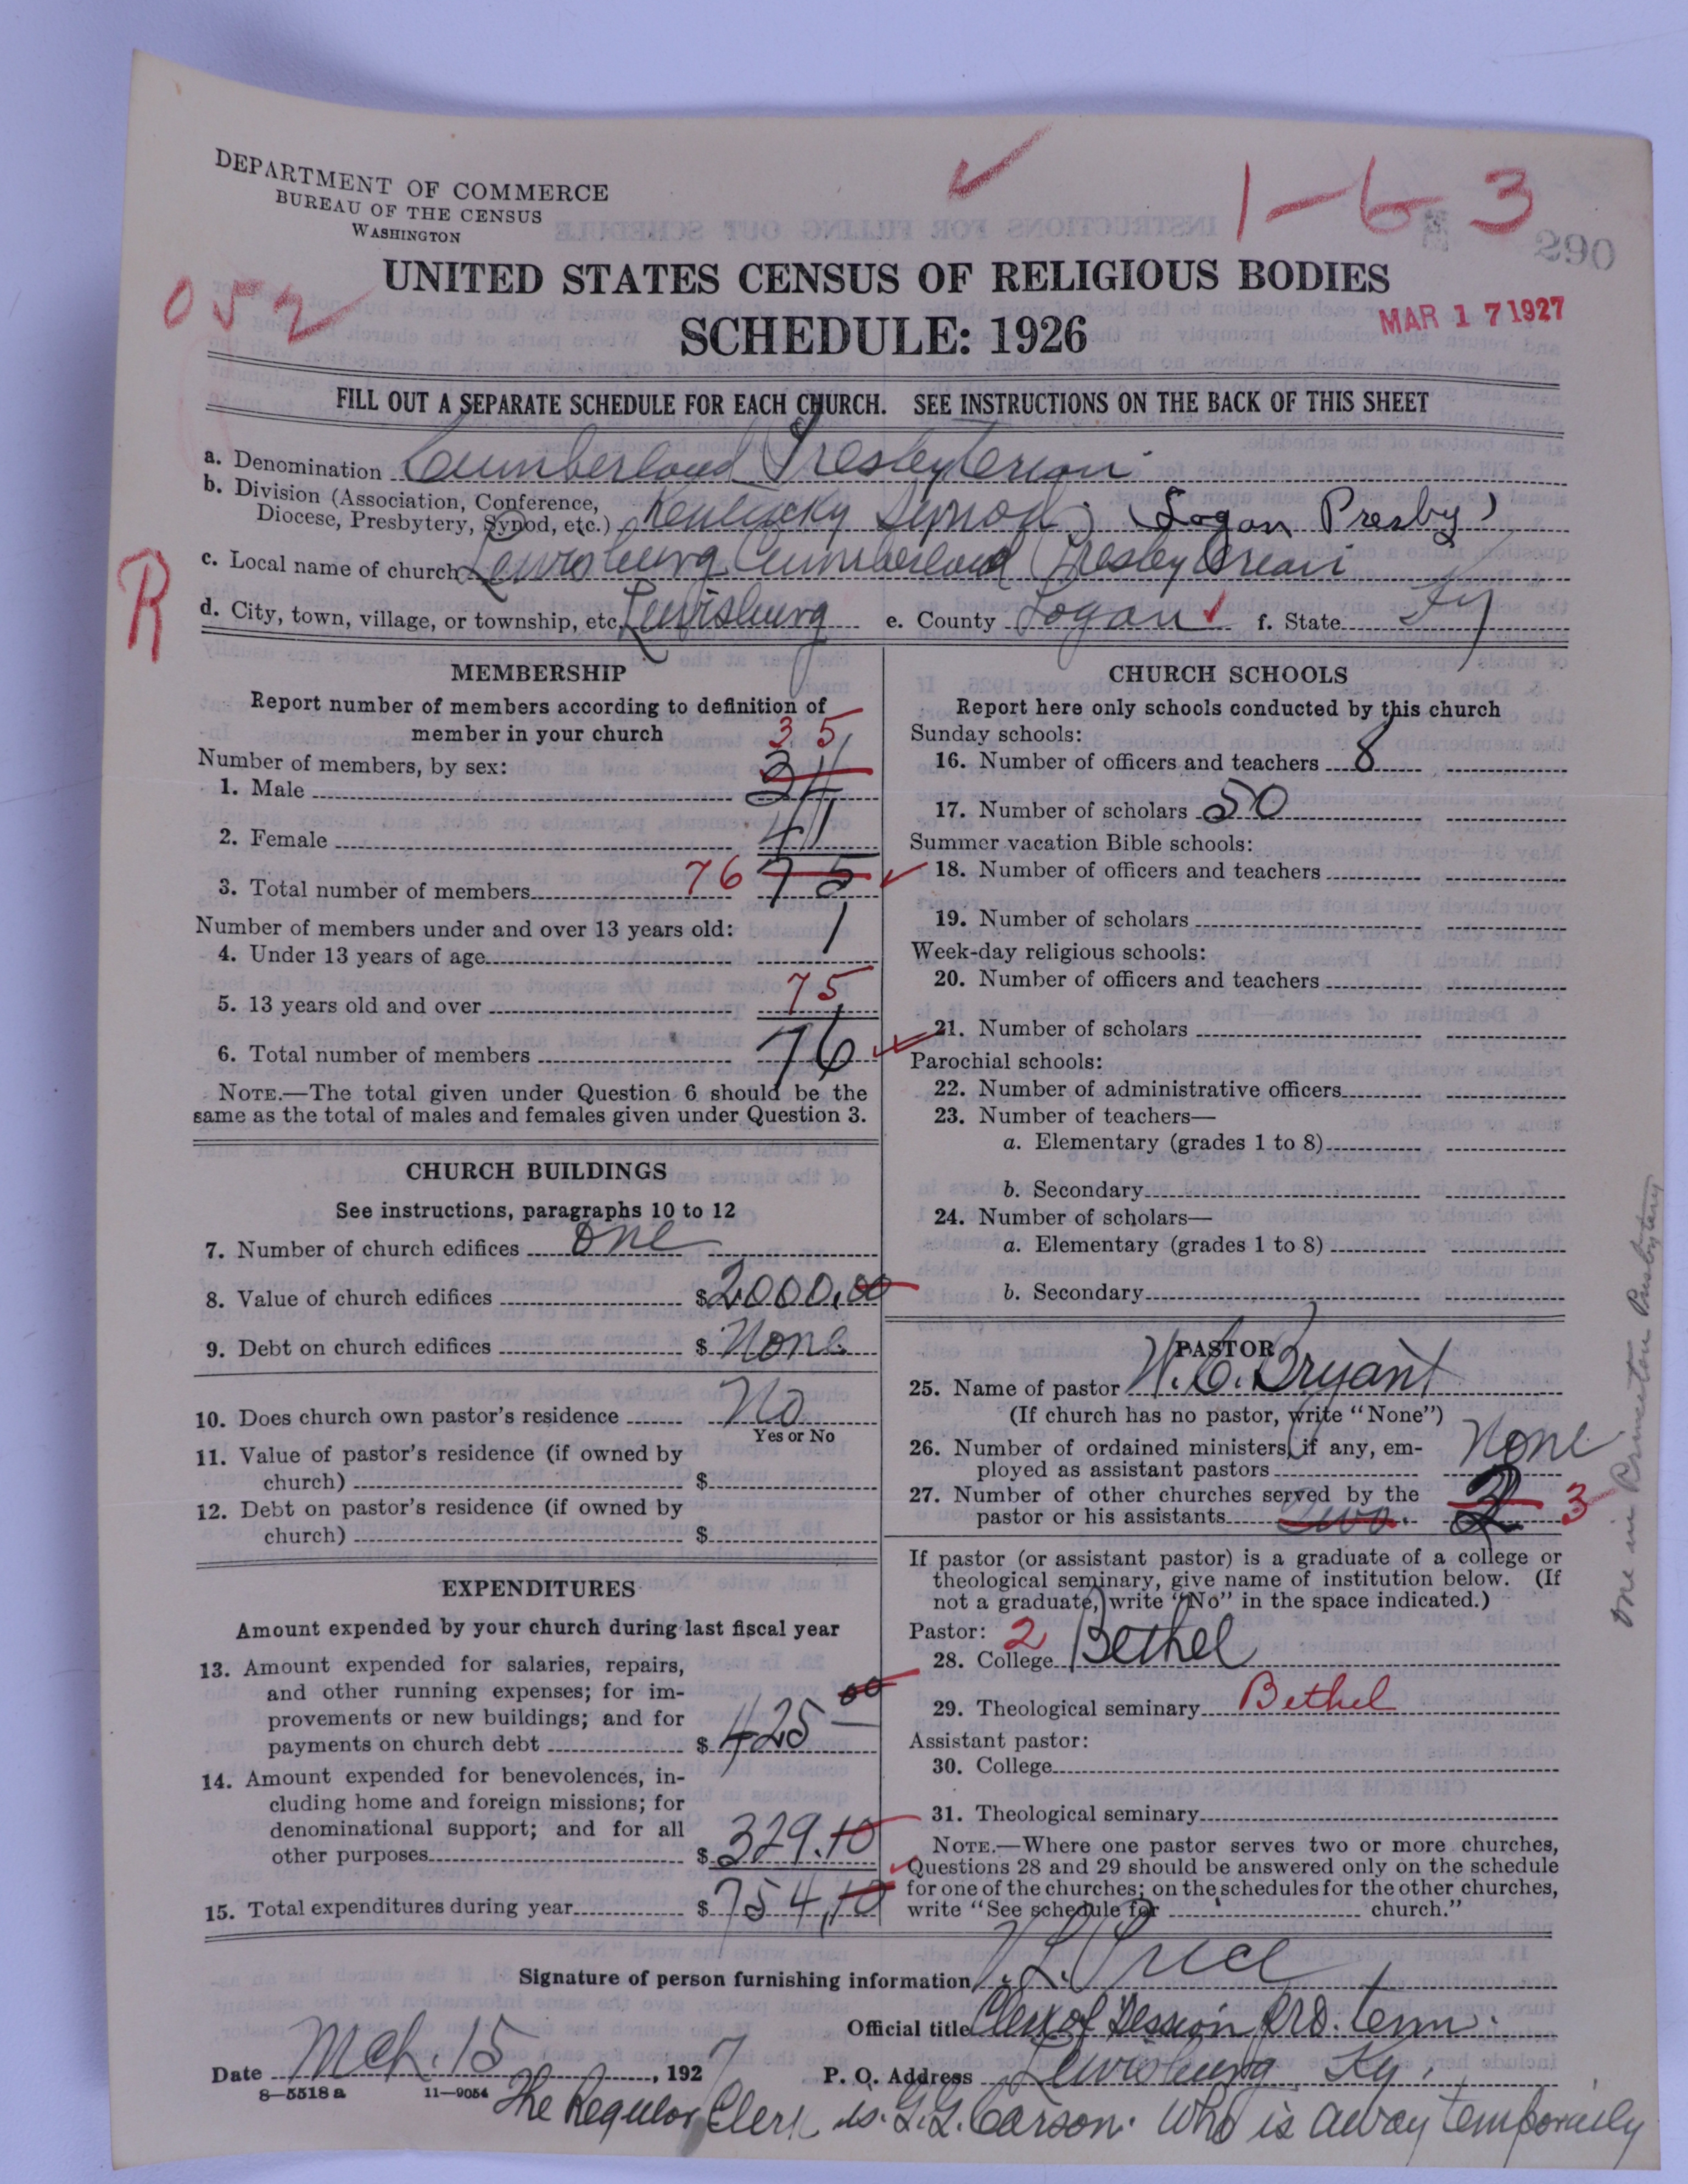 DEPARTMENT OF COMMERCE
BUREAU OF THE CENSUS
WASHINGTON
1-6-3
290
052
UNITED STATES CENSUS OF RELIGIOUS BODIES
SCHEDULE: 1926
MAR 17 1927
FILL OUT A SEPARATE SCHEDULE FOR EACH CHURCH. SEE INSTRUCTIONS ON THE BACK OF THIS SHEET
a. Denomination Cumberland Presbyterian
b. Division (Association, Conference,
Diocese, Presbytery, Synod, etc.) Kentucky Synod; (Logan Presby)
R
c. Local name of church Lewisburg Cumberland Presbyterian
d. City, town, village, or township, etc. Lewisburg e. County Logan f. State Ky
MEMBERSHIP
Report number of members according to definition of
member in your church
Number of members, by sex:
35
1. Male 34
2. Female 41
3. Total number of members 76 75
Number of members under and over 13 years old:
4. Under 13 years of age 1
5. 13 years old and over 75
6. Total number of members 76
NOTE.—The total given under Question 6 should be the
same as the total of males and females given under Question 3.
CHURCH BUILDINGS
See instructions, paragraphs 10 to 12
7. Number of church edifices one
8. Value of church edifices $2000.00
9. Debt on church edifices $ None.
10. Does church own pastor's residence No
Yes or No
11. Value of pastor's residence (if owned by
church) $
12. Debt on pastor's residence (if owned by
church) $
EXPENDITURES
Amount expended by your church during last fiscal year
13. Amount expended for salaries, repairs,
and other running expenses; for im-
provements or new buildings; and for
payments on church debt $ 425 00
14. Amount expended for benevolences, in-
cluding home and foreign missions; for
denominational support; and for all
other purposes $ 329.10
15. Total expenditures during year $ 754.10
CHURCH SCHOOLS
Report here only schools conducted by this church
Sunday schools:
16. Number of officers and teachers 8
17. Number of scholars 50
Summer vacation Bible schools:
18. Number of officers and teachers
19. Number of scholars
Week-day religious schools:
20. Number of officers and teachers
21. Number of scholars
Parochial schools:
22. Number of administrative officers
23. Number of teachers—
a. Elementary (grades 1 to 8)
b. Secondary
24. Number of scholars—
a. Elementary (grades 1 to 8)
b. Secondary
PASTOR
25. Name of pastor W. C. Bryant
(If church has no pastor, write "None")
26. Number of ordained ministers, if any, em-
ployed as assistant pastors None
27. Number of other churches served by the
pastor or his assistants Two. 3
If pastor (or assistant pastor) is a graduate of a college or
theological seminary, give name of institution below. (If
not a graduate, write "No" in the space indicated.)
Pastor: 2
28. College Bethel
29. Theological seminary Bethel
Assistant pastor:
30. College
31. Theological seminary
NOTE.—Where one pastor serves two or more churches,
Questions 28 and 29 should be answered only on the schedule
for one of the churches; on the schedules for the other churches,
write "See schedule for church."
One in Princeton Presbytery
Signature of person furnishing information Price
Official title Clerk of Session pro. tem.
Date Mch. 15, 1927 P. O. Address Lewisburg Ky.
8-5518a 11-9054
The Regular Clerk is G. G. Carson. Who is away temporarily